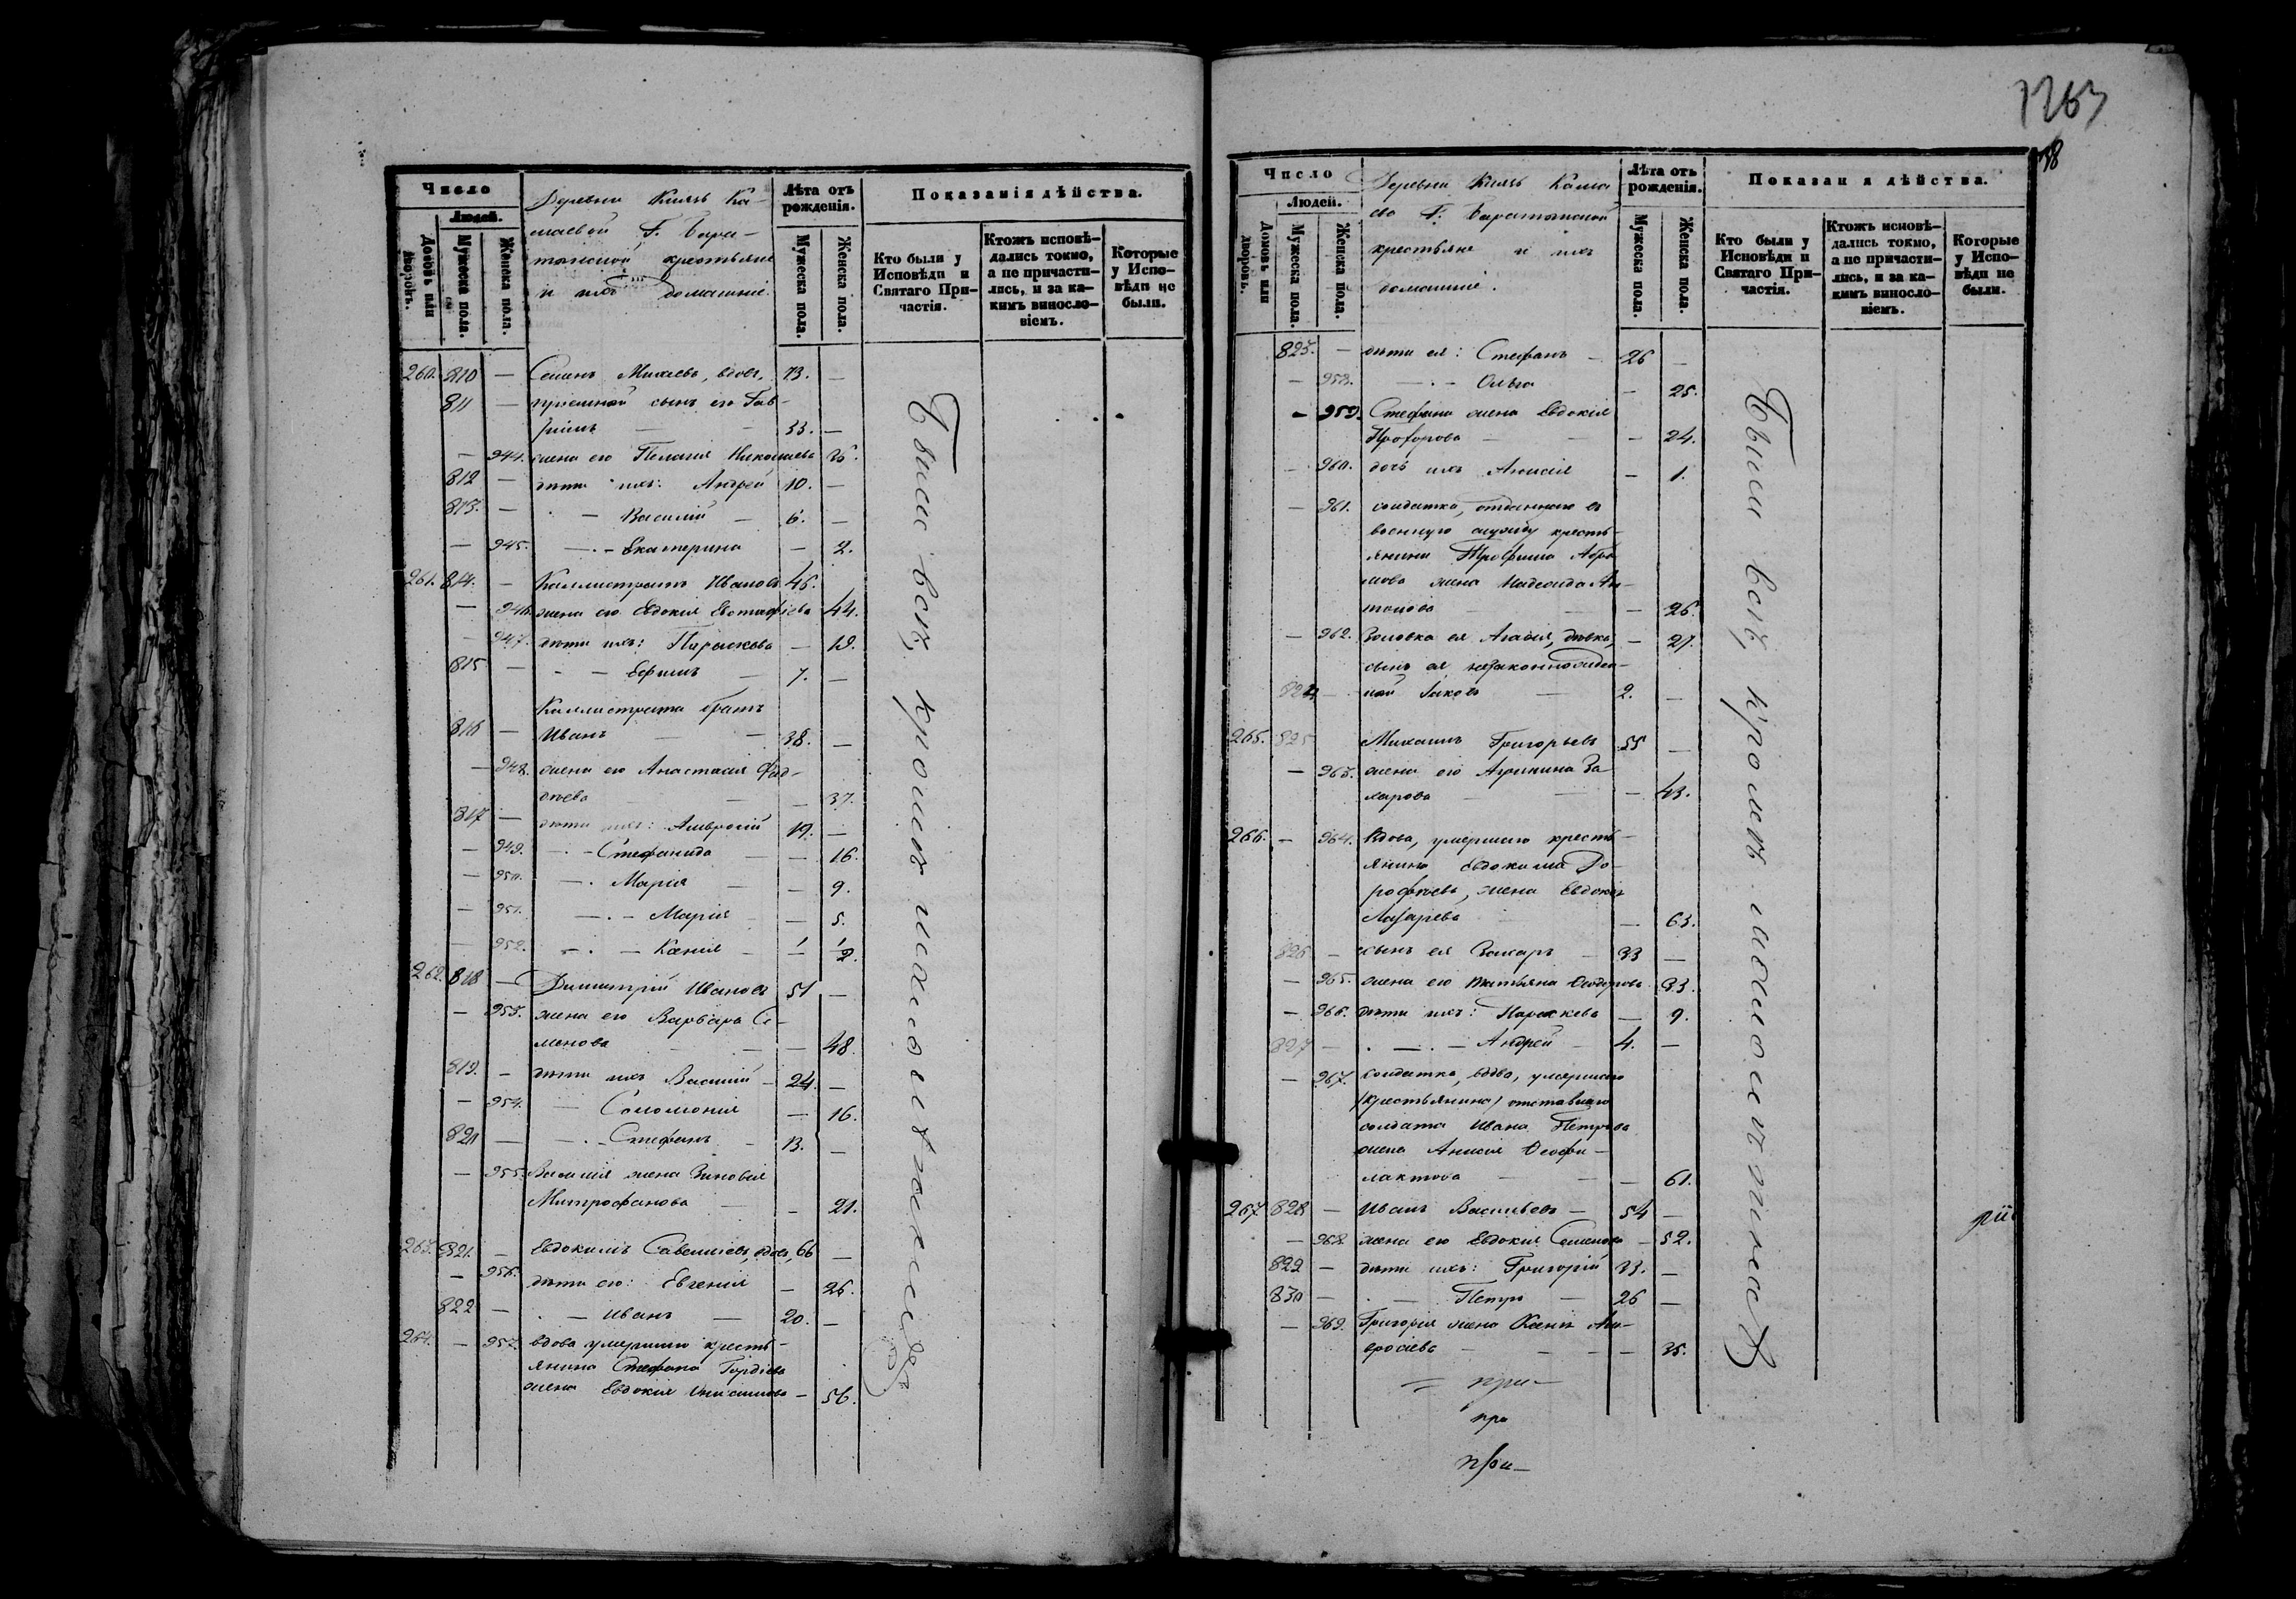 1263
58
Число
Людей.
Домовъ или дворовъ.
Мужеска пола.
Женска пола.
Деревни Князь Ка-
маевой Г. Бара-
танской крестьяне
и ихъ домашніе.
Лѣта отъ рожденія.
Мужеска пола.
Женска пола.
Показанія дѣйства.
Кто были у Исповѣди и Святаго При-частія.
Ктожъ исповѣ-дались токмо, а не причасти-лись, и за ка-кимъ винослo-віемъ.
Которые у Испо-вѣди не были.
260. 810 — Семенъ Михаевъ, вдов. 73. —
811 — пріемной сынъ его Гав-
ріилъ — 33. —
— 944. жена его Пелагія Николаева 36.
812 — дѣти ихъ: Андрей 10. —
813. — Василій — 6. —
— 945. Екатерина — 2.
261. 814. — Каллистратъ Ивановъ 46.
— 946. жена его Евдокія Евстафіева 44.
— 947. дѣти ихъ: Параскева — 19.
815 — Ефимъ — 7. —
Каллистрата братъ
816 — Иванъ — 38. —
— 948. жена его Анастасія Фад-
дѣева — 37.
817 — дѣти ихъ: Амвросій 19. —
— 949. Стефанида — 16.
— 950. Марія — 9.
— 951. Марія — 5.
— 952. Ксенія — 2.
262. 818 — Димитрій Ивановъ 51 —
— 953. жена его Варвара Се-
менова — 48.
819. — дѣти ихъ Василій — 24. —
— 954. Соломонія — 16.
820 — Стефанъ 13. —
— 955. Василія жена Зиновія
Митрофанова — 21.
263. 821. — Евдокимъ Савельевъ, вдов, 66 —
— 956. дѣти его: Евгенія — 26.
822 — Иванъ — 20. —
264. — 957. вдова умершаго кресть-
янина Стефана Гордіева
жена Евдокія Онисимова — 56.
Были всѣ, кромѣ
Число
Людей.
Домовъ или дворовъ.
Мужеска пола.
Женска пола.
Деревни Князь Кама
ево Г. Баратанской
крестьяне и ихъ
домашніе.
Лѣта отъ рожденія.
Мужеска пола.
Женска пола.
Показан я дѣйства.
Кто были у Исповѣди и Святаго При-частія.
Ктожъ исповѣ-дались токмо, а не причасти-лись, и за ка-кимъ винослo-віемъ.
Которые у Испо-вѣди не были.
823. — дѣти ея: Стефанъ — 26 —
— 958. Ольга — 25.
— 959. Стефана жена Евдокія
Прохорова — 24.
— 960. дочь ихъ Анисія — 1.
— 961. солдатка, отданнаго въ
военную службу кресть-
янина Трофима Абра
мова жена Надежда Ан-
тонова — 26.
— 962. Золовка ея Агафія, дѣвка, — 27.
сынъ ея незаконнорожден-
824 — ной Яковъ — 2. —
265. 825 Михаилъ Григорьевъ 55 —
— 963. жена его Агрипина За
харова — 43.
266. — 964. Вдова, умершаго кресть-
янина Евдокима До-
рофѣева, жена Евдокія
Лазарева — 63.
826 — сынъ ея Захаръ — 33 —
— 965. жена его Татьяна Ѳеодорова 33.
— 966. дѣти ихъ: Параскева — 9.
827 — Андрей — 4. —
— 967. солдатка, вдова, умершаго
(крестьянина) отставнаго
солдата Ивана Петрова
жена Анисія Ѳеофи-
лактова — 61.
267 828 — Иванъ Васильевъ — 54 —
— 968. жена его Евдокія Семенова — 52.
829 — дѣти ихъ: Григорій 33. —
830 — Петръ — 26 —
— 969. Григорія жена Ксенія Ам-
вросіева — 35.
при-
при
при-
Были всѣ, кромѣ